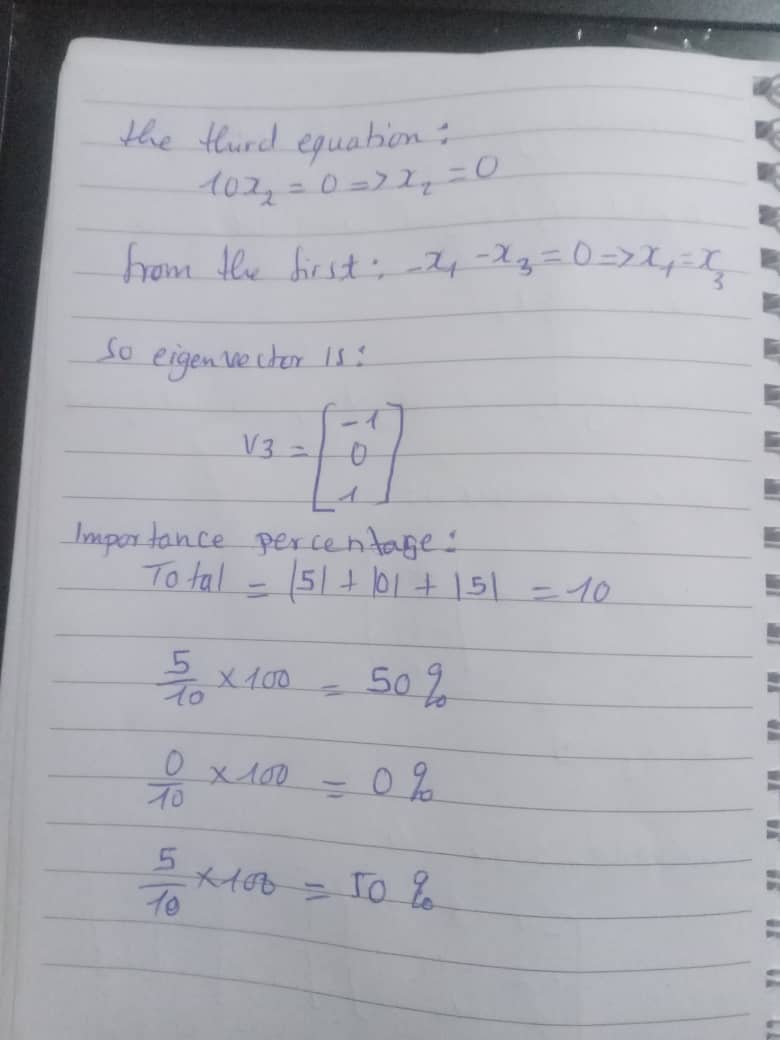 the third equation:
10x₂ = 0 => x₂ = 0
from the first: -x₁ - x₃ = 0 => x₁ = x₃
so eigenvector is:
V3 = [-1
0
1]
Importance percentage:
Total = |5| + |0| + |5| = 10
5/10 × 100 = 50%
0/10 × 100 = 0%
5/10 × 100 = 50%